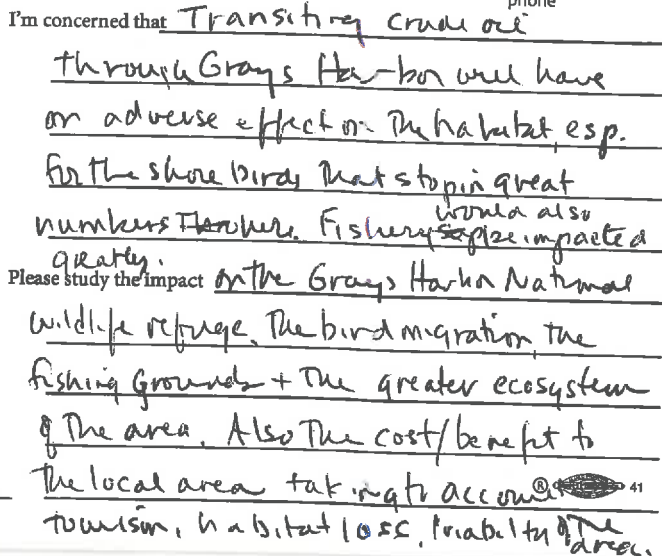 phone
I'm concerned that Transiting crude oil
through Grays Harbor will have
an adverse effect on The habitat, esp.
for the shore birds That stop in great
numbers here. Fishery would also be impacted
greatly.
Please study the impact on the Grays Harbor National
wildlife refuge, The bird migration, the
fishing Grounds + The greater ecosystem
of The area. Also The cost/benefit to
The local area taking to account
® 41
tourism, habitat loss, of The area.